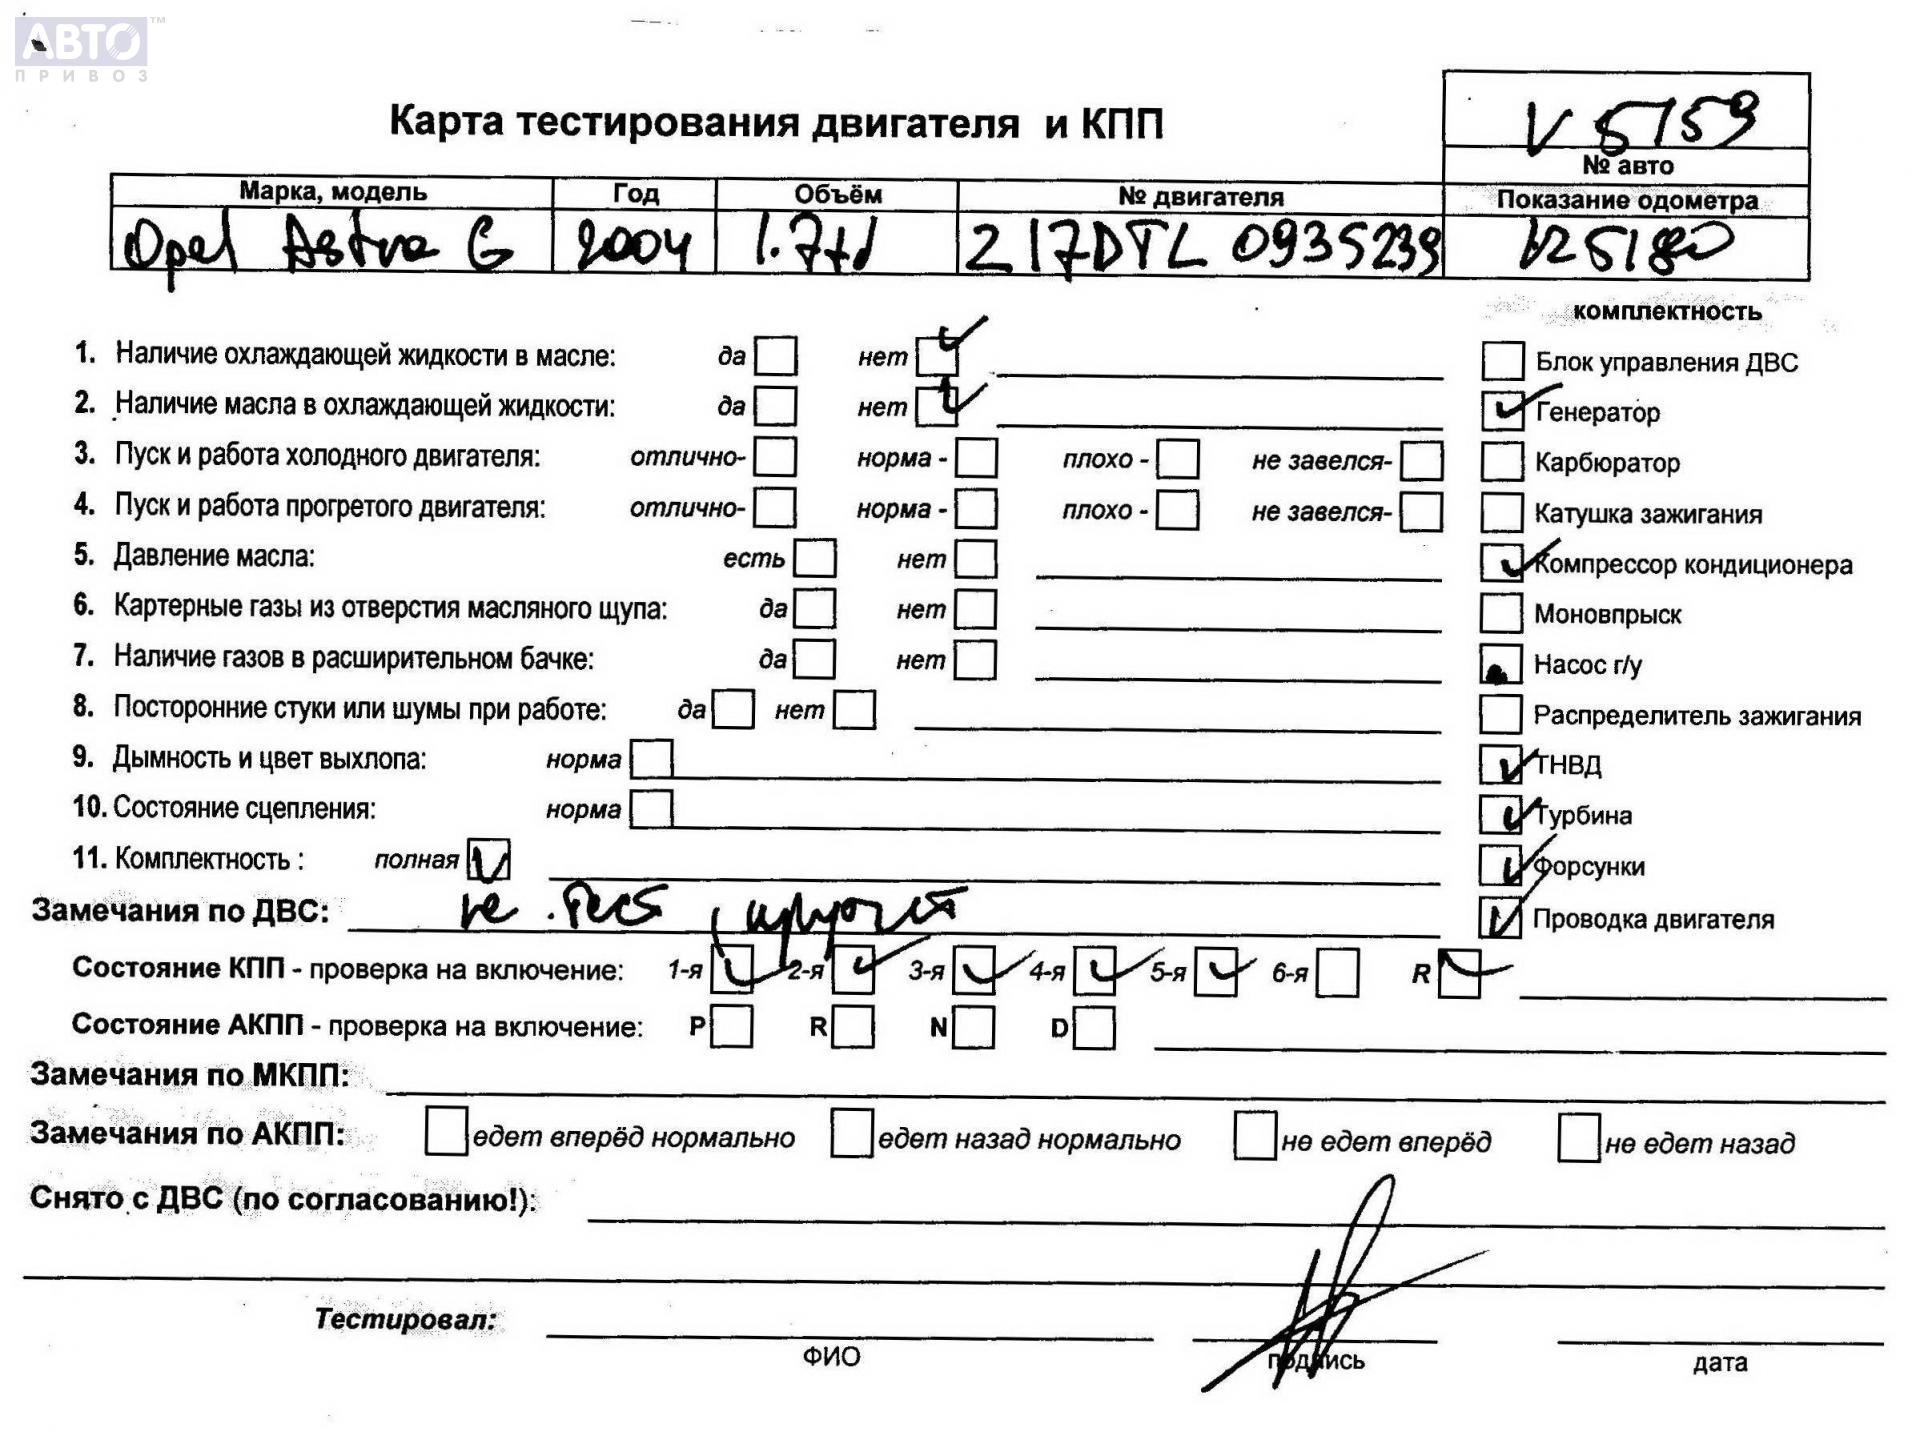 АВТО™
ПРИВОЗ
Карта тестирования двигателя и КПП
V 5159
№ авто
Марка, модель Год Объём № двигателя Показание одометра
Opel Astra G 2004 1.7td Z17DTL 0935239
комплектность
1. Наличие охлаждающей жидкости в масле: да нет Блок управления ДВС
2. Наличие масла в охлаждающей жидкости: да нет Генератор
3. Пуск и работа холодного двигателя: отлично- норма - плохо - не завелся- Карбюратор
4. Пуск и работа прогретого двигателя: отлично- норма - плохо - не завелся- Катушка зажигания
5. Давление масла: есть нет Компрессор кондиционера
6. Картерные газы из отверстия масляного щупа: да нет Моновпрыск
7. Наличие газов в расширительном бачке: да нет Насос г/у
8. Посторонние стуки или шумы при работе: да нет Распределитель зажигания
9. Дымность и цвет выхлопа: норма ТНВД
10. Состояние сцепления: норма Турбина
11. Комплектность : полная Форсунки
Замечания по ДВС: не тест, крутит Проводка двигателя
Состояние КПП - проверка на включение: 1-я 2-я 3-я 4-я 5-я 6-я R
Состояние АКПП - проверка на включение: P R N D
Замечания по МКПП:
Замечания по АКПП: едет вперёд нормально едет назад нормально не едет вперёд не едет назад
Снято с ДВС (по согласованию!):
Тестировал:
ФИО подпись дата